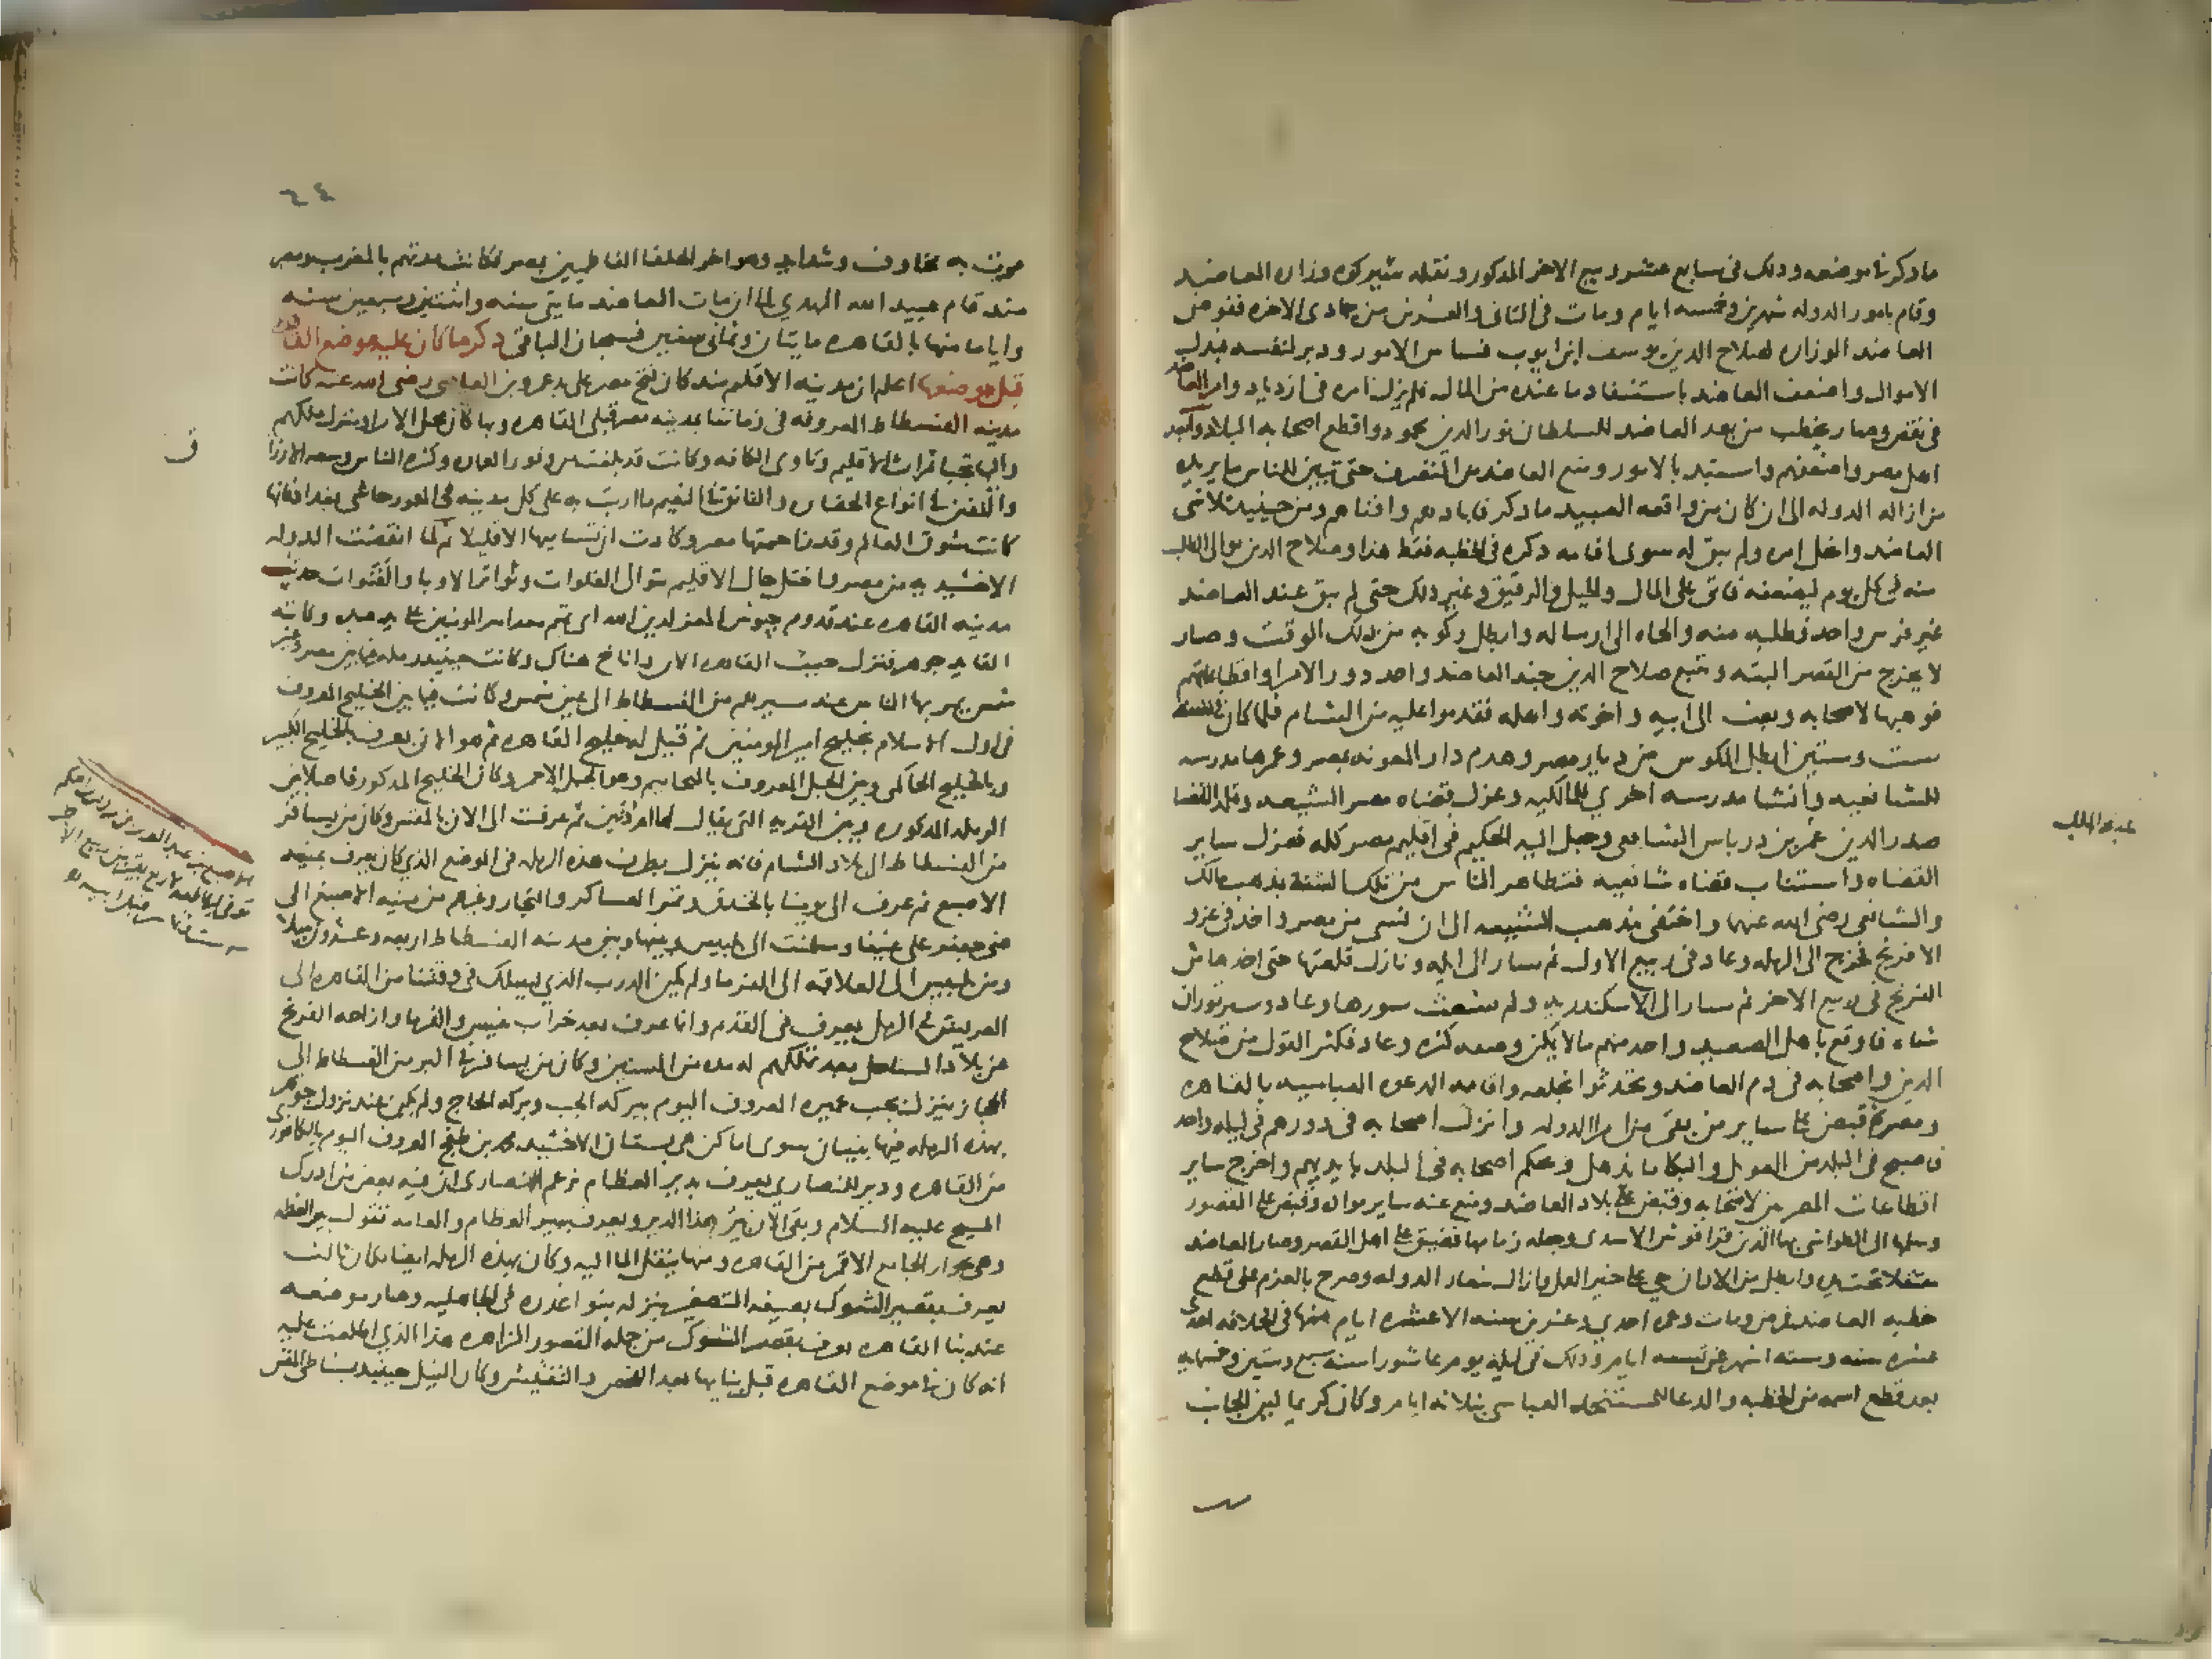 ما دكرنا موضعه ودلك فى سابع عشر ربيع الاخر المدكور وتقلد شيركوه وزاره العاضد
وقام بامور الدوله شهرين وخمسه ايام ومات فى الثانى والعشرين من جمادى الاخره ففوض
العاضد الوزاره لصلاح الدين يوسف ابن ايوب فساس الامور ودبر لنفسه فبدل
الاموال واضعف العاضد باستنفاد ما عنده من المال فلم يزل امره فى ازدياد وامر العاضد
فى نقص وصار يخطب من بعد العاضد للسلطان نور الدين محمود واقطع اصحابه البلاد وابعد
اهل مصر واضعفهم واستبد بالامور ومنع العاضد من التصرف حتى تبين للناس ما يريده
من ازاله الدوله الى ان كان من واقعه العبيد ما دكر فابادهم وافناهم ومن حينيد تلاشى
العاضد وانحل امره ولم يبق له سوى اقامه دكره فى الخطبه فقط هذا وصلاح الدين يوالى الطلب
منه فى كل يوم ليضعفه فاتى على المال والخيل والرقيق وغير دلك حتى لم يبق عند العاضد
غير فرس واحد فطلبه منه والجاه الى ارساله وابطل ركوبه من دلك الوقت وصار
لا يخرج من القصر البته وتتبع صلاح الدين جند العاضد واخد دور الامرا واقطاعاتهم
فوهبها لاصحابه وبعث الى ابيه واخوته واهله فقدموا عليه من الشام فلما كان فى سنه
ست وستين ابطل المكوس من ديار مصر وهدم دار المعونه بمصر وعمرها مدرسه
للشافعيه وانشا مدرسه اخرى للمالكيه وعزل قضاه مصر الشيعه وقلد القضا
صدر الدين بن درباس الشافعى وجعل اليه الحكم فى اقليم مصر كله فعزل ساير
القضاه واستناب قضاه شافعيه فتظاهر الناس من تلك السنه بمذهب مالك
والشافعى رضى الله عنهما واختفى مذهب الشيعه الى ان نسى من مصر واخذ فى غزو
الافرنج فخرج الى الرمله وعاد فى ربيع الاول ثم سار الى ايله ونازل قلعتها حتى اخدها من
الفرنج فى ربيع الاخر ثم سار الى الاسكندريه ولم شعث سورها وعاد وسير توران
شاه فاوقع باهل الصعيد واخد منهم ما لا يمكن وصفه كثره وعاد فكثر القول من صلاح
الدين واصحابه فى دم العاضد وتحدثوا بخلعه واقامه الدعوه العباسيه بالقاهره
ومصر ثم قبض على ساير من بقى من امرا الدوله وانزل اصحابه فى دورهم فى ليله واحده
فاصبح فى البلد من العويل والبكا ما يذهل وتحكم اصحابه فى البلد بايديهم واخرج ساير
اقطاعات المصريين لاصحابه وقبض على بلاد العاضد ومنع عنه ساير مواده وقبض على القصور
وسلمها الى الطواشى بها الدين قراقوش الاسدى وجعله زمامها فضيق على اهل القصر وصار العاضد
معتقلا تحت يده وابطل من الاذان حى على خير العمل وازال شعار الدوله وصرح بالعزم على قطع
خطبه العاضد فمرض ومات وعمره احدى وعشرين سنه الا عشره ايام منها فى الخلافه احدى
عشره سنه وسته اشهر غير تسعه ايام ودلك فى ليله يوم عاشورا سنه سبع وستين وخمسمايه
بعد قطع اسمه من الخطبه والدعا للمستنجد العباسى بثلاثه ايام وكان كريما لين الجانب
٦٤
مرت به مخاوف وشدايد وهو اخر الخلفا الفاطميين بمصر فكانت مدتهم بالمغرب ومصر
مند قام عبيد الله المهدي الى ان مات العاضد مايتى سنه واثنتين وسبعين سنه
واياما منها بالقاهره مايتان وثمانى سنين فسبحان الباقى دكر ما كان عليه موضع القاهره
قبل وضعها اعلم ان مدينه الاقليم مند كان فتح مصر على يد عمرو بن العاصى رضى الله عنه كانت
مدينه الفسطاط المعروفه فى زماننا بمدينه مصر قبلى القاهره وبها كان محل الامرا ومنزل ملكهم
واليها تجبا ثمرات الاقليم وتاوى الكافه وكانت قد بلغت من وفور العماره وكثره الناس وسعه الارزاق
والتفنن فى انواع الحضاره والتانق فى النعيم ما اربت به على كل مدينه فى المعمور حاشى بغداد فانها
كانت سوق العالم وقد زاحمتها مصر وكادت ان تساميها الا قليلا ثم لما انقضت الدوله
الاخشيديه من مصر واختل حال الاقليم بتوالى الغلوات وتواتر الاوبا والفتوات حدثت
مدينه القاهره عند قدوم جيوش المعز لدين الله ابى تميم معد امير المومنين على يد عبده وكاتبه
القايد جوهر فنزل حيث القاهره الان واناخ هناك وكانت حينيد رمله فيما بين مصر وعين
شمس يمر بها الناس عند سيرهم من الفسطاط الى عين شمس وكانت فيما بين الخليج المعروف
فى اول الاسلام بخليج امير المومنين ثم قيل له خليج القاهره ثم هو الان يعرف بالخليج الكبير
وبالخليج الحاكمى وبين الجبل المعروف بالمحاجر وهو الجبل الاحمر وكان الخليج المدكور فاصلا بين
الرمله المدكوره وبين القريه التى يقال لها ام دنين ثم عرفت الى الان بالمقس وكان من يسافر
من الفسطاط الى بلاد الشام فانه ينزل بطرف هذه الرمله فى الموضع الذى كان يعرف بمنيه
الاصبغ ثم عرف الى يومنا بالخندق وتمر العساكر والتجار وغيرهم من منيه الاصبغ الى
منى جعفر على غيفا وسلمنت الى بلبيس وبينها وبين مدينه الفسطاط اربعه وعشرون ميلا
ومن بلبيس الى العلاقه الى الفرما ولم يكن الدرب الذى يسلك فى وقتنا من القاهره الى
العريش فى الرمل يعرف فى القديم وانما عرف بعد خراب تنيس والفرما وازاحه الفرنج
عن بلاد الساحل بعد تملكهم له مده من السنين وكان من يسافر فى البر من الفسطاط الى
الحجاز ينزل بجب عميره المعروف اليوم ببركه الجب وبركه الحاج ولم يكن عند نزول جوهر
بهذه الرمله فيها بنيان سوى اماكن هى بستان الاخشيد محمد بن طغج المعروف اليوم بالكافورى
من القاهره ودير للنصارى يعرف بدير العظام تزعم النصارى ان فيه بعض من ادرك
المسيح عليه السلام وبقى الان بير هذا الدير ويعرف ببير العظام والعامه تقول بير العظمه
وهى بجوار الجامع الاقمر من القاهره ومنها ينقل الما اليه وكان بهذه الرمله ايضا مكان ثالث
يعرف بقصير الشوك بصيغه التصغير ينزله بنو اعذره فى الجاهليه وصار موضعه
عند بنا القاهره يعرف بقصر الشوك من جمله القصور الزاهره هذا الذى اطلعت عليه
انه كان فى موضع القاهره قبل بنايها بعد الفحص والتفتيش وكان النيل حينيد بشاطى المقس